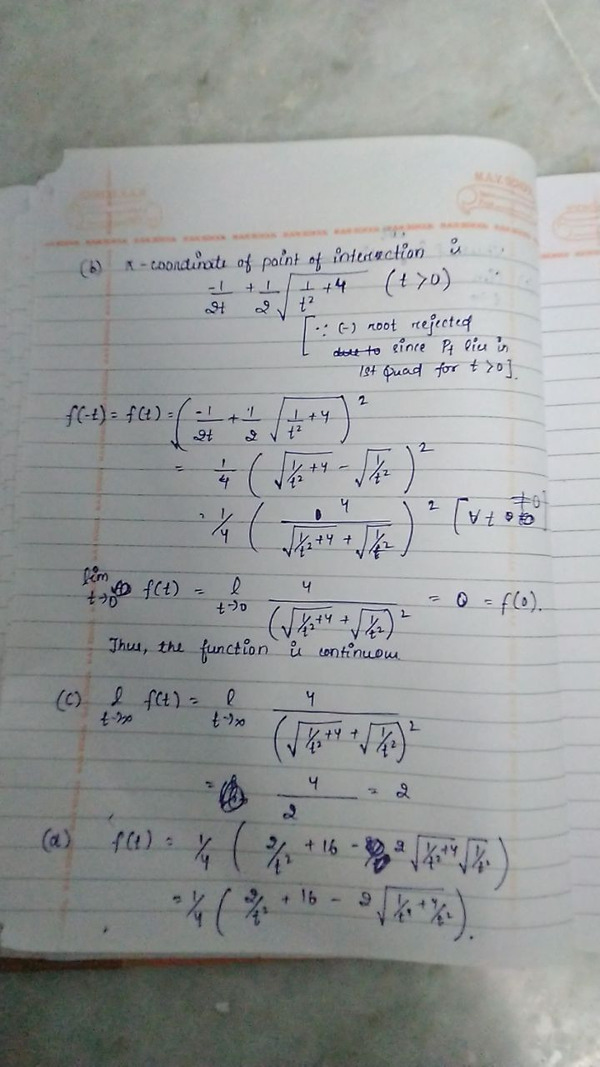 (b) x-coordinate of point of intersection is
-1/2t + 1/2 √(1/t² + 4) (t > 0)
[∵ (-) root rejected
due to since Pt lies in
1st Quad for t > 0].
f(-t) = f(t) = (-1/2t + 1/2 √(1/t² + 4))²
= 1/4 (√(1/t² + 4) - √(1/t²))²
= 1/4 (4/(√(1/t² + 4) + √(1/t²)))²
lim t→0 f(t) = l t→0 4/(√(1/t² + 4) + √(1/t²))² = 0 = f(0).
Thus, the function is continuous
(c) l t→∞ f(t) = l t→∞ 4/(√(1/t² + 4) + √(1/t²))²
= 4/2 = 2
(a) f(t) = 1/4 (2/t² + 16 - 2 √(1/t² + 4) √(1/t²))
= 1/4 (2/t² + 16 - 2 √(1/t⁴ + 4/t²)).